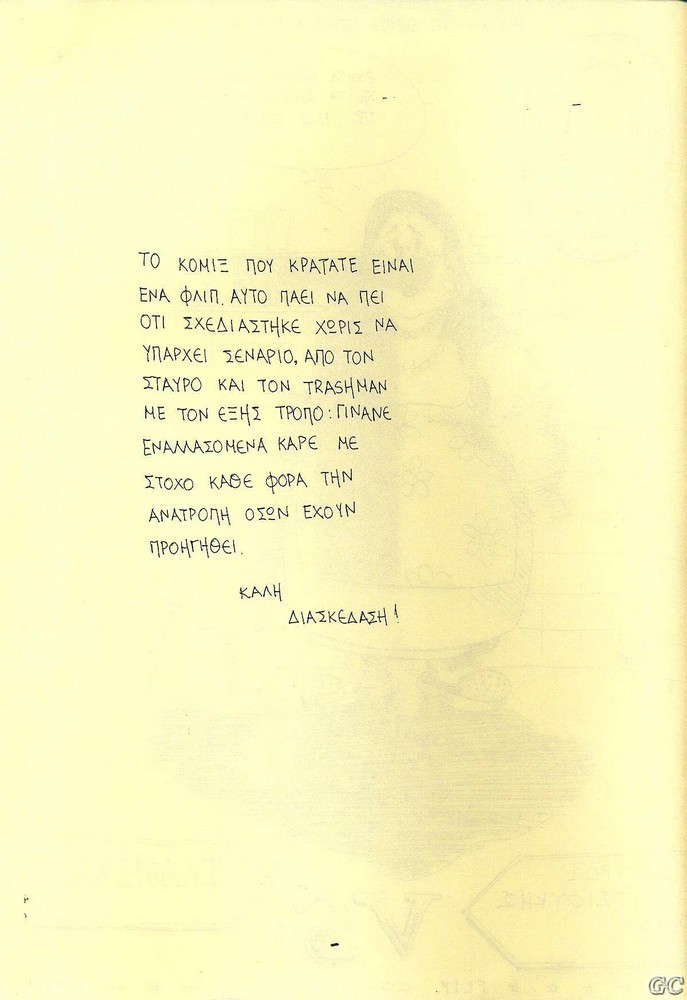 ΤΟ ΚΟΜΙΞ ΠΟΥ ΚΡΑΤΑΤΕ ΕΙΝΑΙ
ΕΝΑ ΦΛΙΠ. ΑΥΤΟ ΠΑΕΙ ΝΑ ΠΕΙ
ΟΤΙ ΣΧΕΔΙΑΣΤΗΚΕ ΧΩΡΙΣ ΝΑ
ΥΠΑΡΧΕΙ ΣΕΝΑΡΙΟ, ΑΠΟ ΤΟΝ
ΣΤΑΥΡΟ ΚΑΙ ΤΟΝ TRASHMAN
ΜΕ ΤΟΝ ΕΞΗΣ ΤΡΟΠΟ: ΓΙΝΑΝΕ
ΕΝΑΛΛΑΣΟΜΕΝΑ ΚΑΡΕ ΜΕ
ΣΤΟΧΟ ΚΑΘΕ ΦΟΡΑ ΤΗΝ
ΑΝΑΤΡΟΠΗ ΟΣΩΝ ΕΧΟΥΝ
ΠΡΟΗΓΗΘΕΙ.
ΚΑΛΗ
ΔΙΑΣΚΕΔΑΣΗ!
GC